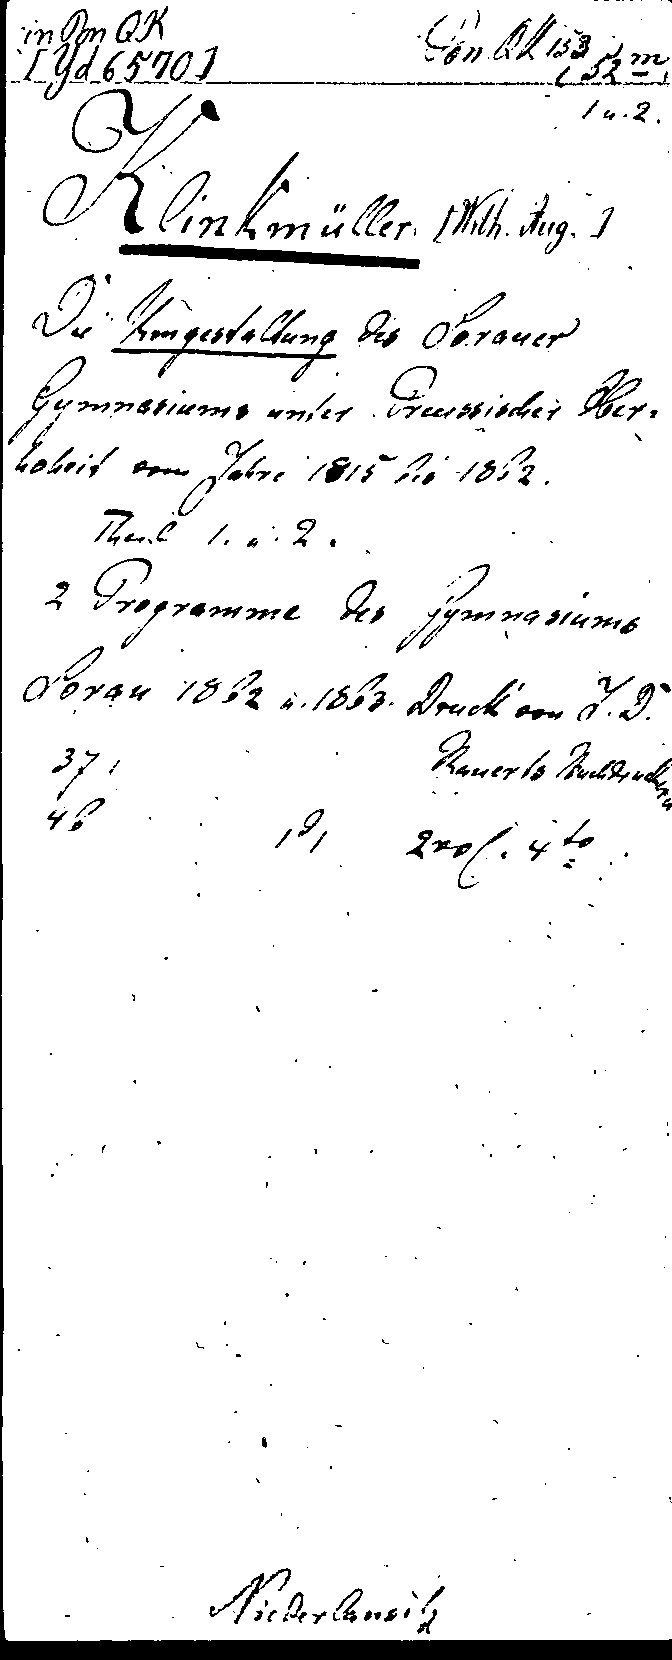 in Pon QK
[Yd 6570]
Pon QK 153
(52 m
1 u. 2.
Klinkmüller. [Wilh. Aug.]
Die Umgestaltung des Sorauer
Gymnasiums unter Preussischer Ober-
hoheit vom Jahre 1815 bis 1862.
Theil 1. u. 2.
2 Programme des Gymnasiums
Sorau 1862 u. 1863. Druck von J. D.
Rauerts Buchdruckerei
37,
46
2 vol. 4to
Niederlausitz